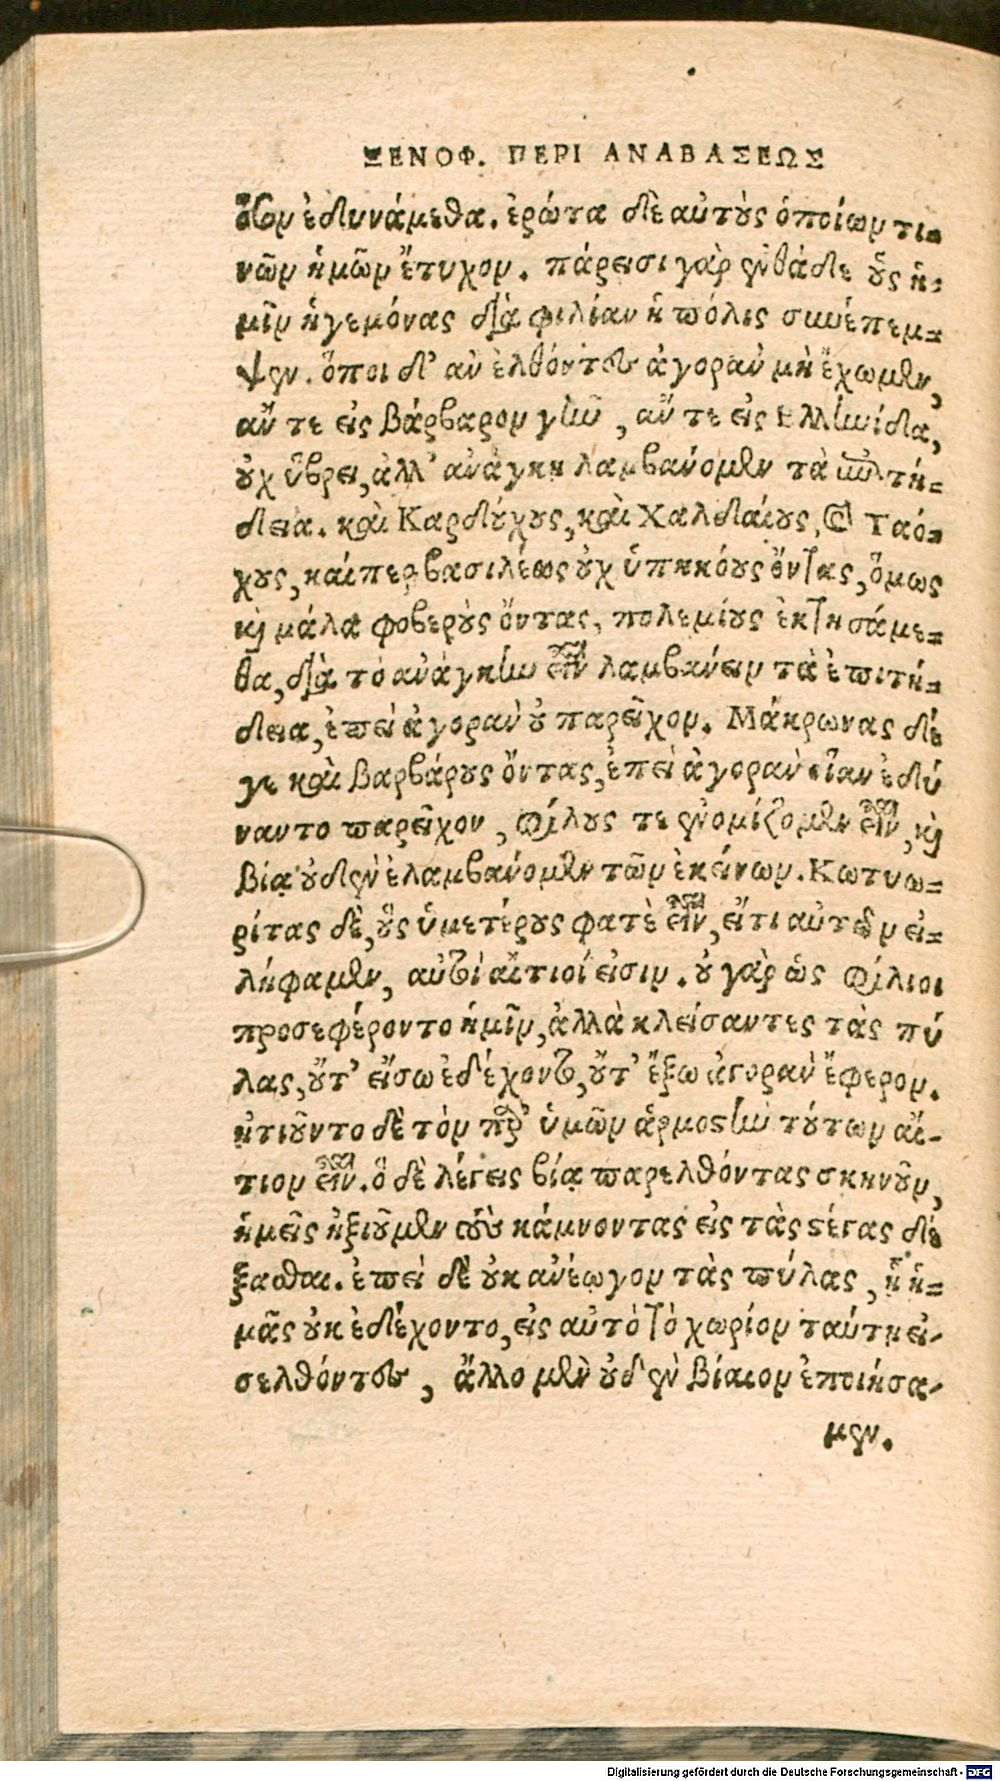 ΞΕΝΟΦ. ΠΕΡΙ ΑΝΑΒΑΣΕΩΣ
ὅσον ἐδυνάμεθα. ἐρώτα δὲ αὐτοὺς ὁποίων τι-
νῶν ἡμῶν ἔτυχον. πάρεισι γὰρ ἐνθάδε οὓς ἡ-
μῖν ἡγεμόνας διὰ φιλίαν ἡ πόλις συνέπεμ-
ψεν. ὅποι δ' ἂν ἐλθόντες ἀγορὰν μὴ ἔχωμεν,
ἄν τε εἰς βάρβαρον γῆν, ἄν τε εἰς Ελληνίδα,
οὐχ ὕβρει, ἀλλ' ἀνάγκη λαμβάνομεν τὰ ἐπιτή-
δεια. καὶ Καρδούχους, καὶ Χαλδαίους, καὶ Ταό-
χους, καίπερ βασιλέως οὐχ ὑπηκόους ὄντας, ὅμως
καὶ μάλα φοβεροὺς ὄντας, πολεμίους ἐκτησάμε-
θα, διὰ τὸ ἀνάγκην εἶναι λαμβάνειν τὰ ἐπιτή-
δεια, ἐπεὶ ἀγορὰν οὐ παρεῖχον. Μάκρωνας δέ
γε καὶ βαρβάρους ὄντας, ἐπεὶ ἀγορὰν οἵαν ἐδύ
ναντο παρεῖχον, φίλους τε ἐνομίζομεν εἶναι, καὶ
βίᾳ οὐδὲν ἐλαμβάνομεν τῶν ἐκείνων. Κωτυω-
ρίτας δὲ, οὓς ὑμετέρους φατὲ εἶναι, εἴ τι αὐτῶν εἰ-
λήφαμεν, αὐτοὶ αἴτιοί εἰσιν. οὐ γὰρ ὡς φίλιοι
προσεφέροντο ἡμῖν, ἀλλὰ κλείσαντες τὰς πύ
λας, οὔτ' εἴσω ἐδέχοντο, οὔτ' ἔξω ἀγορὰν ἔφερον.
ᾐτιοῦντο δὲ τὸν παρ' ὑμῶν ἁρμοστὴν τούτων αἴ-
τιον εἶναι. ὃ δὲ λέγεις βίᾳ παρελθόντας σκηνοῦν,
ἡμεῖς ἠξιοῦμεν τοὺς κάμνοντας εἰς τὰς στέγας δέ
ξασθαι. ἐπεὶ δὲ οὐκ ἀνέῳγον τὰς πύλας, ᾗ ἡ-
μᾶς οὐκ ἐδέχοντο, εἰς αὐτὸ τὸ χωρίον ταύτῃ εἰ-
σελθόντες, ἄλλο μὲν οὐδὲν βίαιον ἐποιήσα-
μεν.
Digitalisierung gefördert durch die Deutsche Forschungsgemeinschaft - DFG